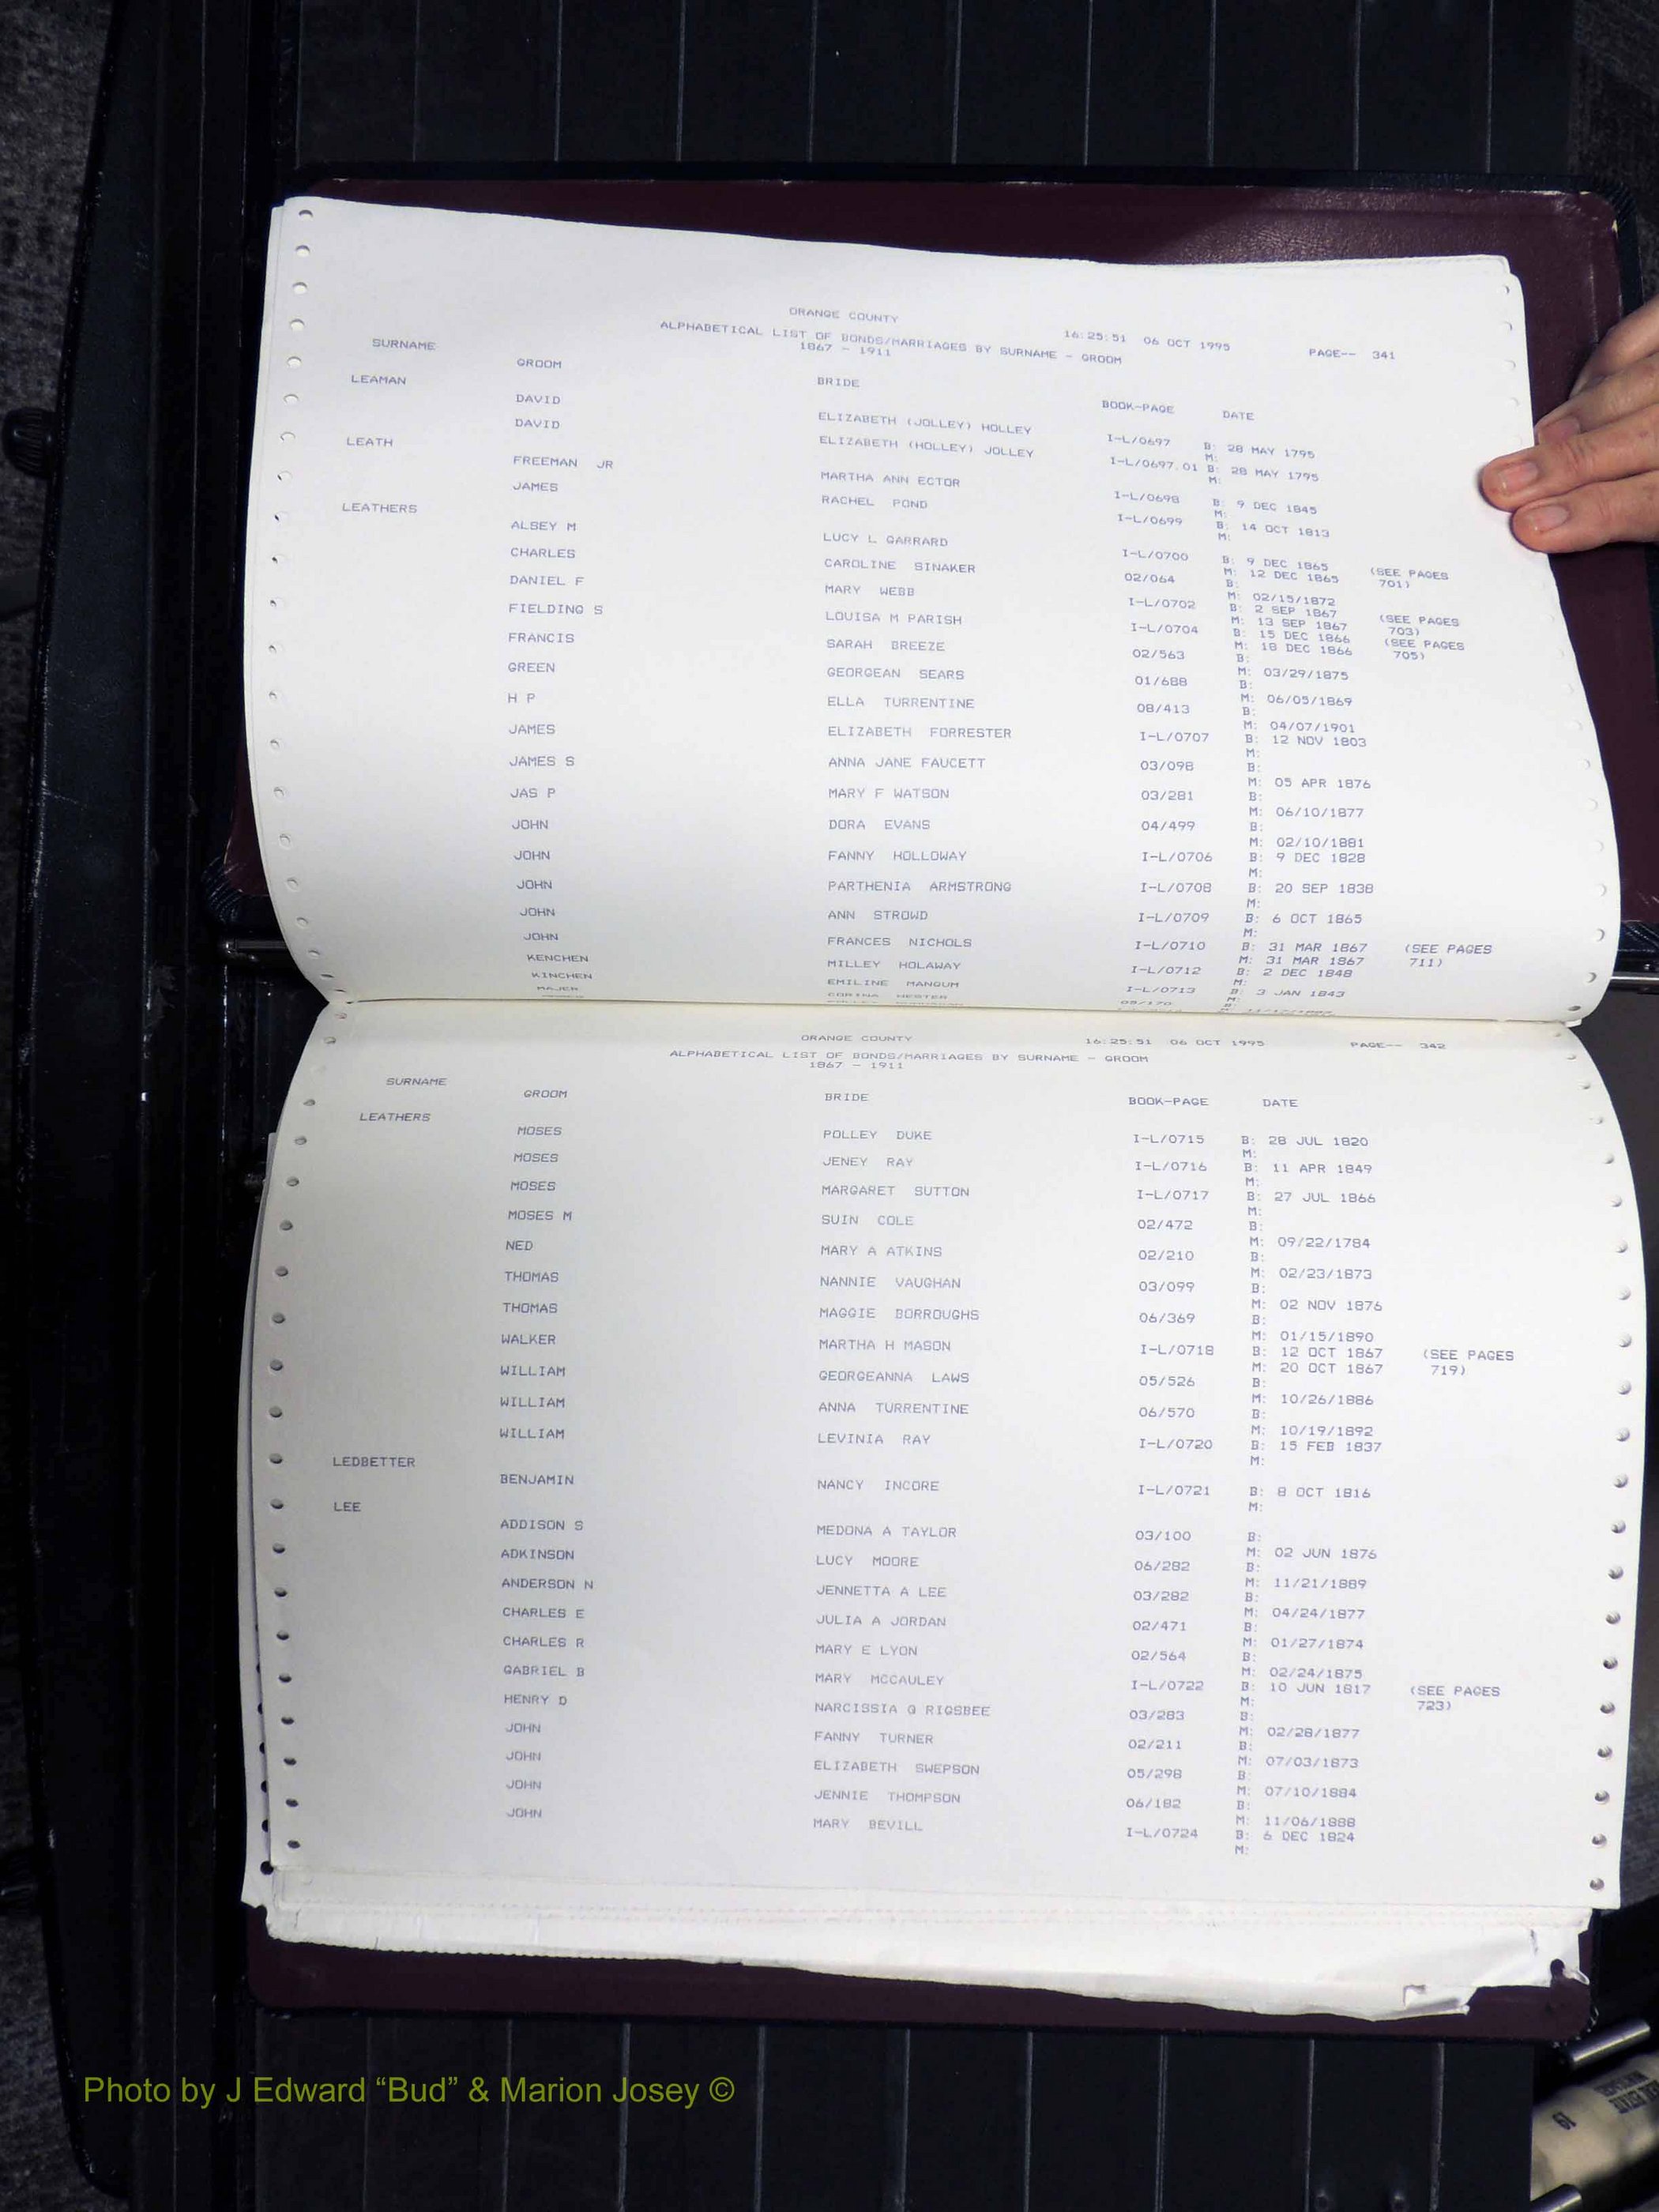 ORANGE COUNTY 16:25:51 06 OCT 1995 PAGE-- 341
ALPHABETICAL LIST OF BONDS/MARRIAGES BY SURNAME - GROOM
1867 - 1911
SURNAME GROOM BRIDE BOOK-PAGE DATE
LEAMAN
DAVID ELIZABETH (JOLLEY) HOLLEY I-L/0697 B: 28 MAY 1795
M:
DAVID ELIZABETH (HOLLEY) JOLLEY I-L/0697.01 B: 28 MAY 1795
M:
LEATH
FREEMAN JR MARTHA ANN ECTOR I-L/0698 B: 9 DEC 1845
M:
JAMES RACHEL POND I-L/0699 B: 14 OCT 1813
M:
LEATHERS
ALSEY M LUCY L GARRARD I-L/0700 B: 9 DEC 1865 (SEE PAGES
M: 12 DEC 1865 701)
CHARLES CAROLINE SINAKER 02/064 B:
M: 02/15/1872
DANIEL F MARY WEBB I-L/0702 B: 2 SEP 1867 (SEE PAGES
M: 13 SEP 1867 703)
FIELDING S LOUISA M PARISH I-L/0704 B: 15 DEC 1866 (SEE PAGES
M: 18 DEC 1866 705)
FRANCIS SARAH BREEZE 02/563 B:
M: 03/29/1875
GREEN GEORGEAN SEARS 01/688 B:
M: 06/05/1869
H P ELLA TURRENTINE 08/413 B:
M: 04/07/1901
JAMES ELIZABETH FORRESTER I-L/0707 B: 12 NOV 1803
M:
JAMES S ANNA JANE FAUCETT 03/098 B:
M: 05 APR 1876
JAS P MARY F WATSON 03/281 B:
M: 06/10/1877
JOHN DORA EVANS 04/499 B:
M: 02/10/1881
JOHN FANNY HOLLOWAY I-L/0706 B: 9 DEC 1828
M:
JOHN PARTHENIA ARMSTRONG I-L/0708 B: 20 SEP 1838
M:
JOHN ANN STROWD I-L/0709 B: 6 OCT 1865
M:
JOHN FRANCES NICHOLS I-L/0710 B: 31 MAR 1867 (SEE PAGES
M: 31 MAR 1867 711)
KENCHEN MILLEY HOLAWAY I-L/0712 B: 2 DEC 1848
M:
KINCHEN EMILINE MANGUM I-L/0713 B: 3 JAN 1843
M:
MAJER CORINA HESTER 05/170
ORANGE COUNTY 16:25:51 06 OCT 1995 PAGE-- 342
ALPHABETICAL LIST OF BONDS/MARRIAGES BY SURNAME - GROOM
1867 - 1911
SURNAME GROOM BRIDE BOOK-PAGE DATE
LEATHERS
MOSES POLLEY DUKE I-L/0715 B: 28 JUL 1820
M:
MOSES JENEY RAY I-L/0716 B: 11 APR 1849
M:
MOSES MARGARET SUTTON I-L/0717 B: 27 JUL 1866
M:
MOSES M SUIN COLE 02/472 B:
M: 09/22/1784
NED MARY A ATKINS 02/210 B:
M: 02/23/1873
THOMAS NANNIE VAUGHAN 03/099 B:
M: 02 NOV 1876
THOMAS MAGGIE BORROUGHS 06/369 B:
M: 01/15/1890
WALKER MARTHA H MASON I-L/0718 B: 12 OCT 1867 (SEE PAGES
M: 20 OCT 1867 719)
WILLIAM GEORGEANNA LAWS 05/526 B:
M: 10/26/1886
WILLIAM ANNA TURRENTINE 06/570 B:
M: 10/19/1892
WILLIAM LEVINIA RAY I-L/0720 B: 15 FEB 1837
M:
LEDBETTER
BENJAMIN NANCY INCORE I-L/0721 B: 8 OCT 1816
M:
LEE
ADDISON S MEDONA A TAYLOR 03/100 B:
M: 02 JUN 1876
ADKINSON LUCY MOORE 06/282 B:
M: 11/21/1889
ANDERSON N JENNETTA A LEE 03/282 B:
M: 04/24/1877
CHARLES E JULIA A JORDAN 02/471 B:
M: 01/27/1874
CHARLES R MARY E LYON 02/564 B:
M: 02/24/1875
GABRIEL B MARY MCCAULEY I-L/0722 B: 10 JUN 1817 (SEE PAGES
M: 723)
HENRY D NARCISSIA G RIGSBEE 03/283 B:
M: 02/28/1877
JOHN FANNY TURNER 02/211 B:
M: 07/03/1873
JOHN ELIZABETH SWEPSON 05/298 B:
M: 07/10/1884
JOHN JENNIE THOMPSON 06/182 B:
M: 11/06/1888
JOHN MARY BEVILL I-L/0724 B: 6 DEC 1824
M:
Photo by J Edward “Bud” & Marion Josey ©
19